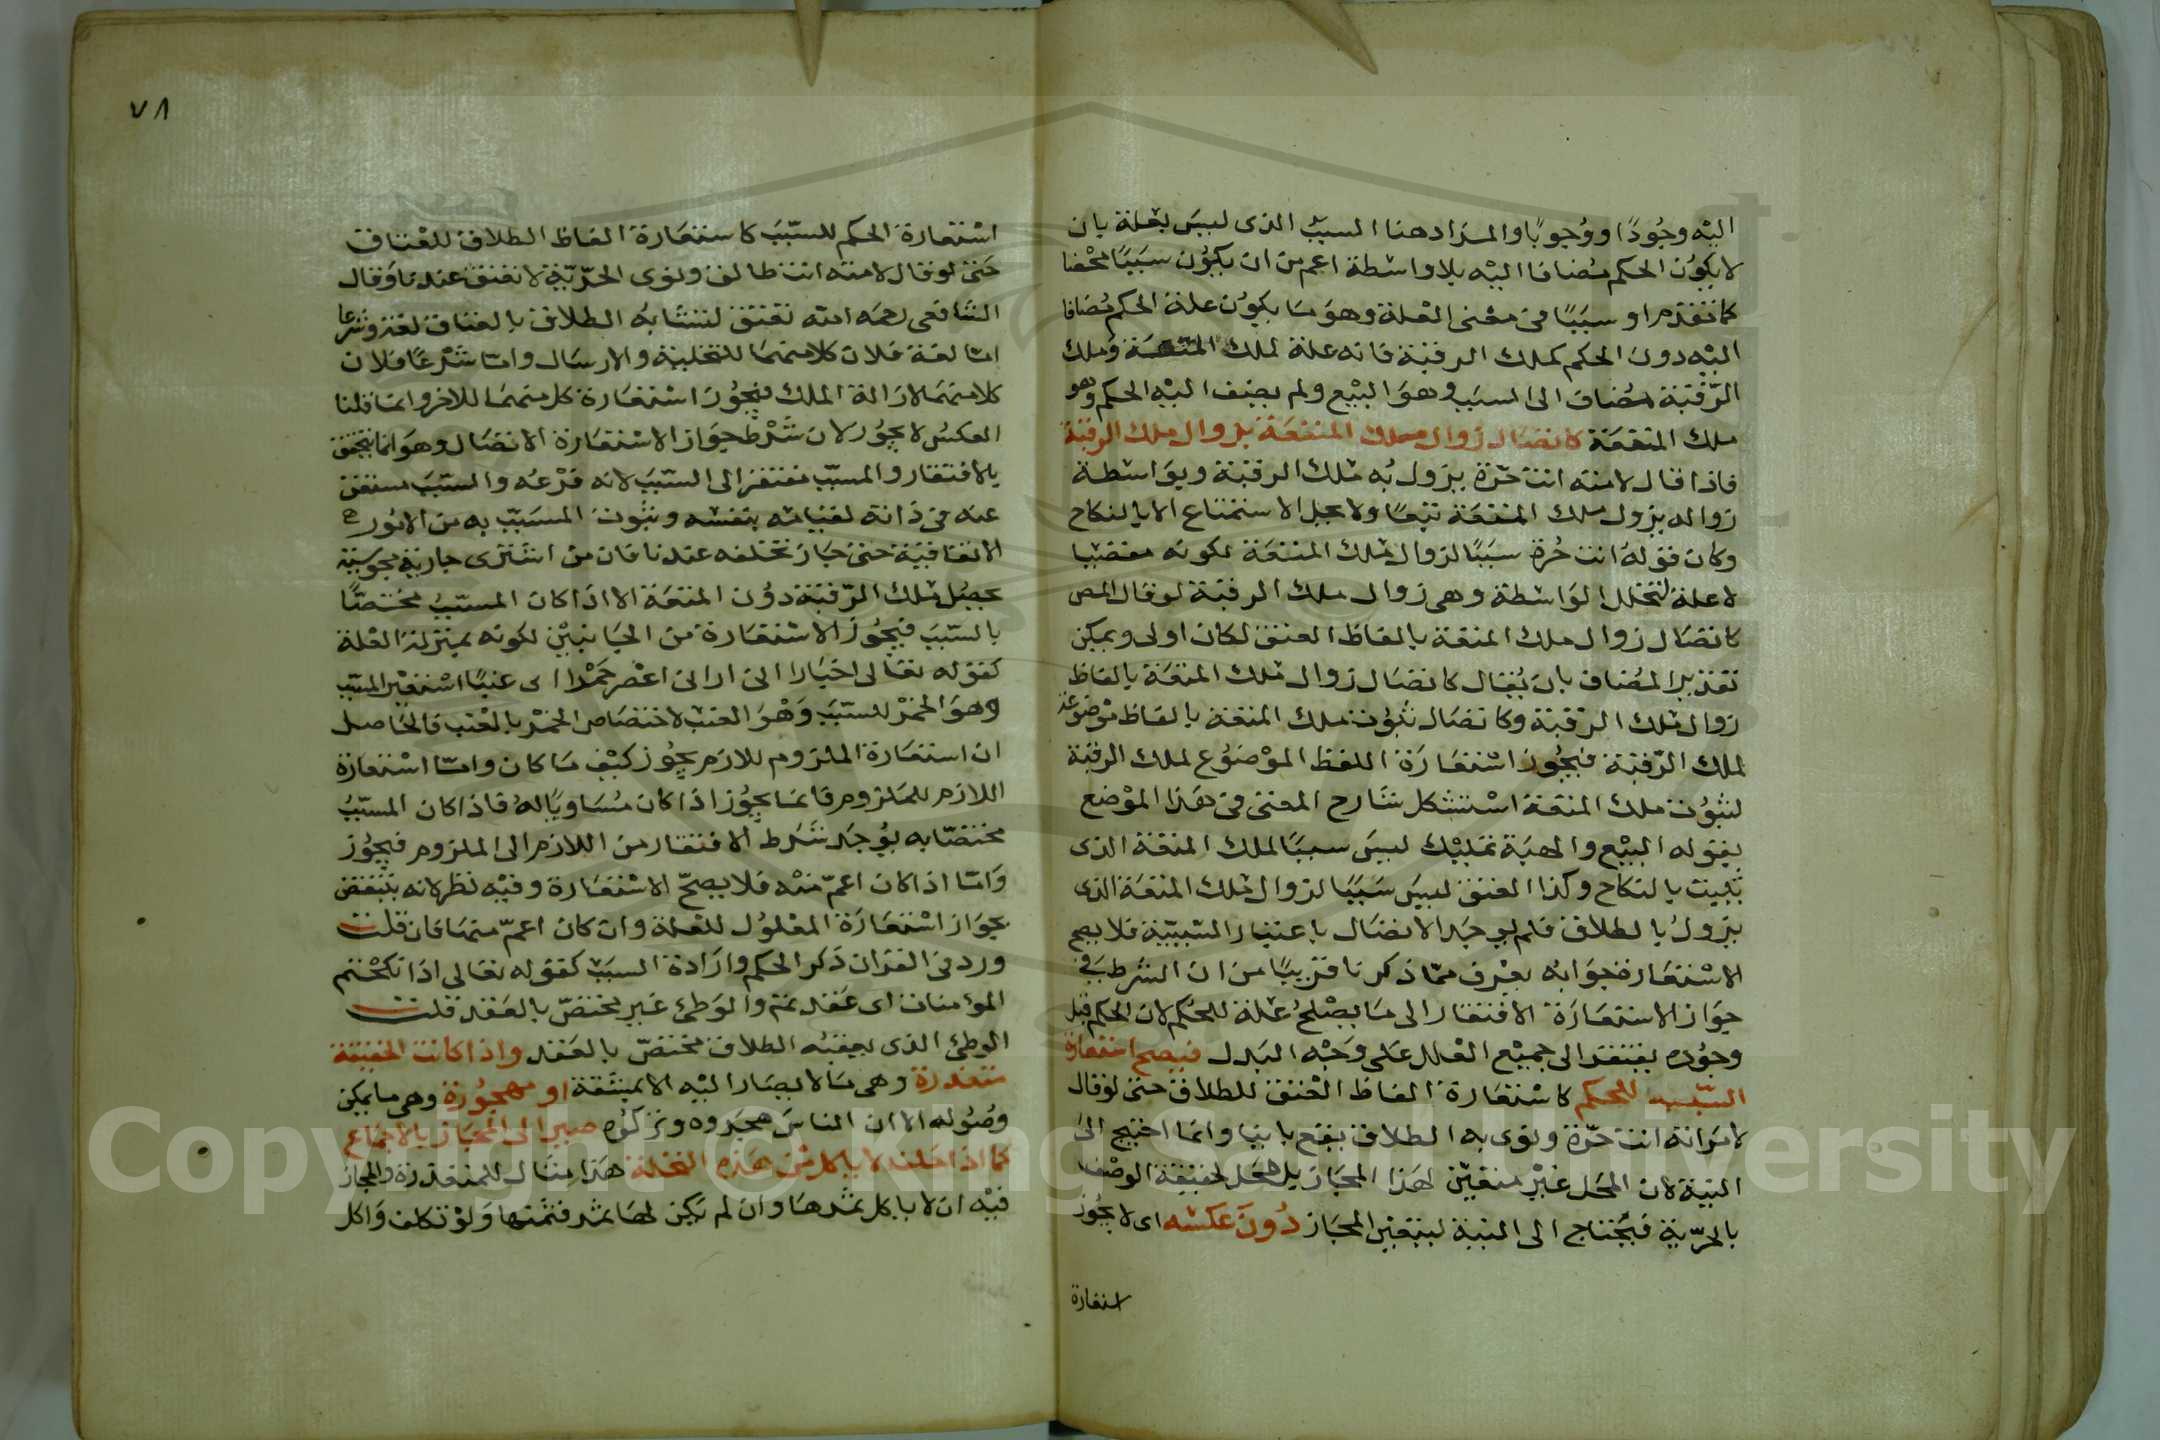 اليْه وجُودًا ووُجوبًا والمراد هنا السبب الذى ليسَ بعلة بان
لا يكوُن الحكم مُضافا اليْه بلا واسْطة اعم من ان يكوُن سَببًا محْضا
كما تقدم او سببًا فى معْنى العْلة وهوَ مَا يكوُن علة الحكم مُضافا
اليْه دون الحكم كملك الرقبة فانه علة لملك المتعَة وملك
الرّقبَة مُضاف الى السبب وهوَ البيْع ولم يضف اليْه الحكم وهو
ملك المتعَة كاتصَال زوال ملك المتعَة بزوال ملك الرقبة
فاذا قال لامته انت حرّة يزول به ملك الرقبَة وبوَاسْطة
زواله يزول ملك المتعَة تبعًا ولا يحل الاستمتاع الا بالنكاح
وكان قوله انت حُرة سببًا لزوال ملك المتعَة لكونه مفضيا
لا علة لتخلل الوَاسْطة وهى زوال ملك الرقبة لو قال المص
كاتصَال زوال ملك المتعة بالفاظ العتق لكان اولى ويمكن
تقدير المضاف بان يُقال كاتصَال زوال ملك المتعَة بالفاظ
زوال ملك الرقبة وكاتصَال ثبوُت ملك المتعة بالفاظ موْضوعة
لملك الرّقبَة فيجُوز اسْتعَارَة اللفظ الموْضوُع لملك الرقبة
لثبوُت ملك المتعة اسْتشكل شارح المغنى فى هَذا الموْضع
بقوله البيْع والهبَة تمليْك ليسَ سببًا لملك المتعة الذى
يثبت بالنكاح وكذا العتق ليسَ سَببًا لزوال ملك المتعَة الذى
يزولُ بالطلاق فلم يوجَد الاتصَال باعتبار السّببيّة فلا يصح
الاسْتعَارة جوَابه يعْرف ممّا ذكرنا قريبًا من ان الشرط فى
جوَاز الاستعَارَة الافتقار الى مَا يصْلحُ علة للحُكم لان الحكم قبل
وجُوده يفتقر الى جميْع العْلل على وَجْه البَدل فيصح استعارة
السّبب للحكم كاسْتعَارة الفاظ العْتق للطلاق حتى لو قال
لامْرَاته انت حرّة ونوى به الطلاق يقع باينا وانما احتيج الى
النية لان المحَل غيْر متعيّن لهَذا المجَاز بل محَل لحقيْقة الوصْف
بالحرّية فيَحْتاج الى النية ليتعيّن المجَاز دُونَ عَكسْه اى لا يجُوز
استعارة
٧٨
اسْتعارة الحكم للسّبَب كاستعَارة الفاظ الطلاق للعْتاق
حَتى لو قال لامته انت طالق ونوى الحرّية لا تعتق عندنا وَقال
الشافعى رحمَه الله تعتق لتشابه الطلاق بالعتاق لغة وشرعا
امّا لغة فلان كلا منهمَا للتخلية والارسَال وامّا شرْعًا فلان
كلا منهمَا لازالة الملك فيجُوز اسْتعَارة كل منهمَا للاخر وانما قلنا
العكس لا يجُوز لان شرْط جوَاز الاسْتعَارة الاتصَال وهوَ انما يتحقق
بالافتقار والمسبّب مفتقر الى السّبَب لانه فرْعُه والسّبَب مستغن
عنه فى ذاته لقيَامه بنفسْه وثبوُت المسَبّب به من الامُور
الاتفاقيّة حَتى جَاز تخلفه عندنا فان من اشترى جارية مجوسيّة
يحصُل ملك الرّقبَة دوُن المتعَة الا اذا كان المسّببُ مختصّا
بالسّبَب فيجُوز الاسْتعَارة من الجَانبيْن لكونه بمنزلة العْلة
كقوله تعَالى اخبَارا انى ارانى اعْصر خَمْرا اى عنبًا اسْتعيْر المسبّب
وهوَ الخمْرُ للسّبَب وَهْوَ العنبُ لاختصَاص الخمْر بالعْنب فالحَاصل
ان استعَارة الملزوم للازم يجُوز كيْف مَا كان وامّا اسْتعارة
اللازم للمَلزوم فانمَا يجُوز اذا كان مُسَاويًا لهُ فاذا كان المسبّبُ
مختصّا به يوُجَد شرَط الافتقار من اللازم الى الملزوم فيجُوز
وَامّا اذا كان اعمّ منْه فلا يصحّ الاسْتعَارة وفيْه نظر لانه ينتقض
بجوَاز اسْتعَارَة المعْلوُل للعْلة وان كان اعمّ منهَا فان قلت
ورد فى القران ذكر الحكم وارَادة السبَب كقوله تعَالى اذا نكحْتم
المؤمنات اى عَقدتم والوَطئ غير مختصّ بالعَقد قلت
الوطئ الذى يعقبُه الطلاق مختصّ بالعَقد واذا كانت الحقيقة
متعذرة وهى مَا لا يصَار اليْه الا بمشَقة او مهجُورة وهى ما يمكن
وصُوله الا ان الناسَ هجَروه وتركوُه صير الى المجَاز بالاجمَاع
كما اذا حلف لا ياكل منْ هَذه النخلة هَذا مثال للمتعذرة والمجاز
فيْه ان لا ياكل ثمَرهَا وان لم يَكن لهَا ثمَر فثمنها وَلوْ تكلف وَاكل